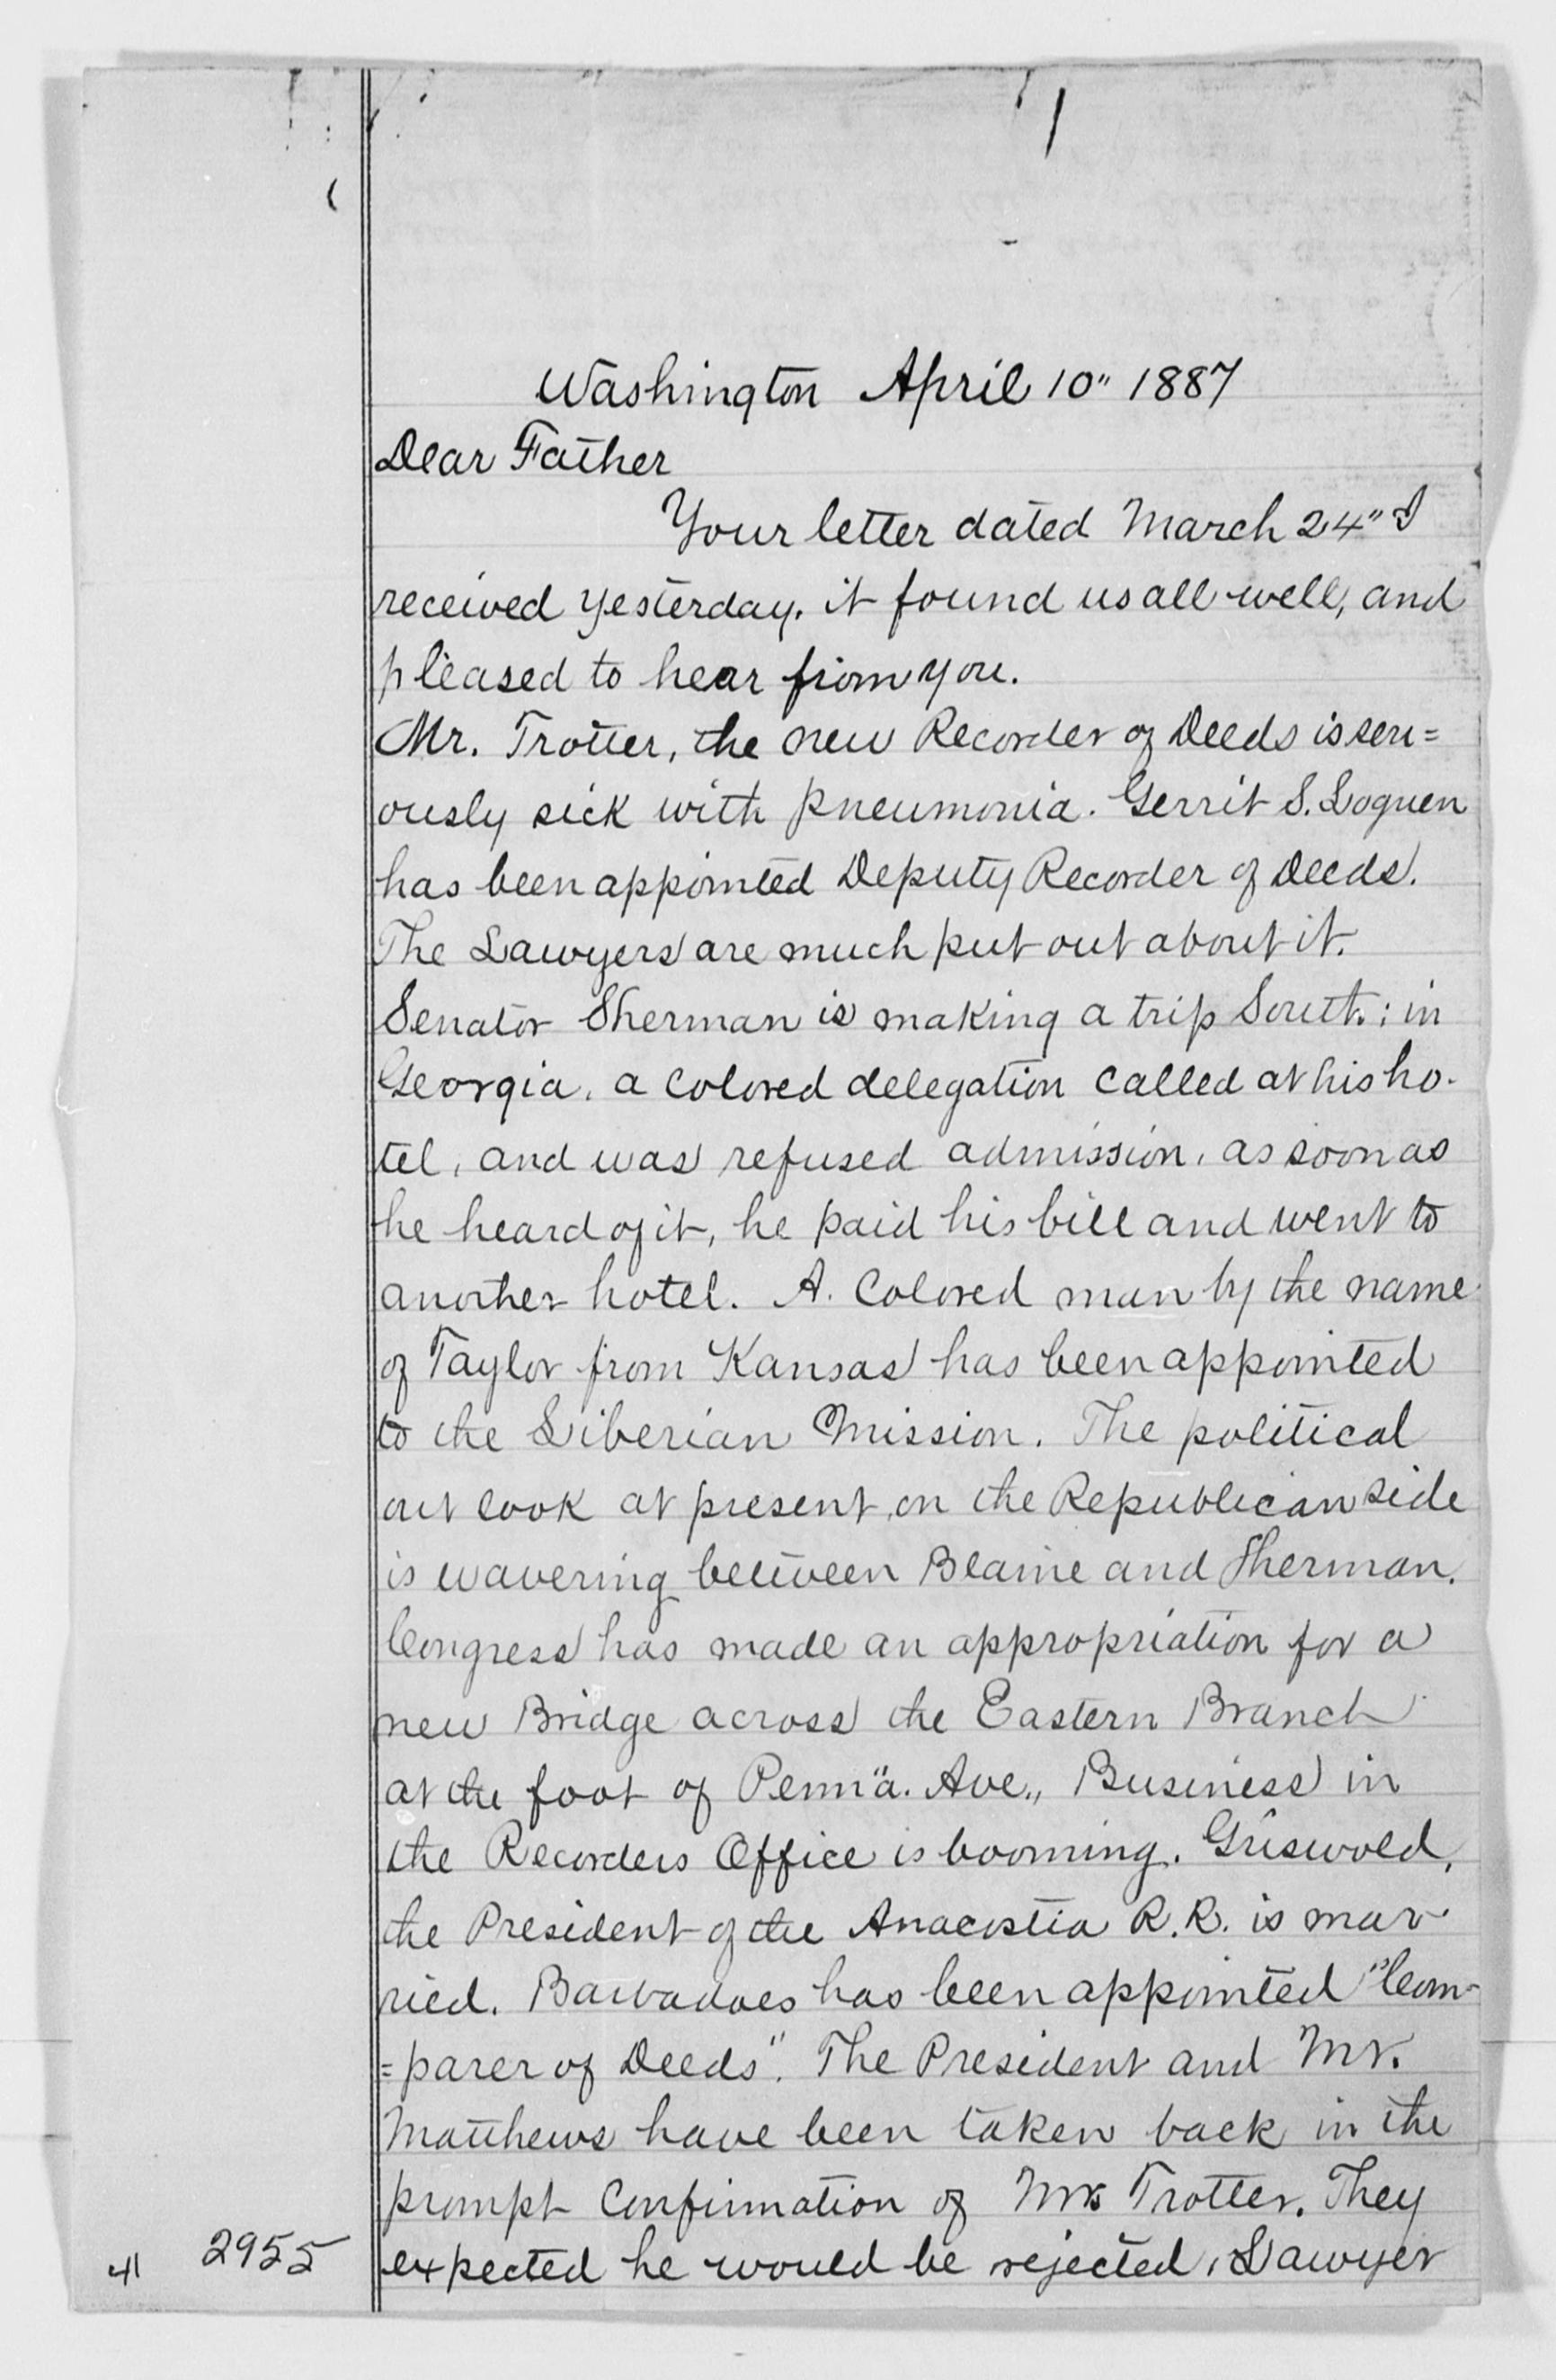 Washington April 10" 1887
Dear Father
Your letter dated March 24" I
received yesterday. it found us all well, and
pleased to hear from you.
Mr. Trotter, the new Recorder of Deeds is seri=
ously sick with pneumonia. Gerrit S. Loguen
has been appointed Deputy Recorder of Deeds.
The Lawyers are much put out about it.
Senator Sherman is making a trip South; in
Georgia, a colored delegation called at his ho-
tel, and was refused admission, as soon as
he heard of it, he paid his bill and went to
another hotel. A. Colored man by the name
of Taylor from Kansas has been appointed
to the Liberian Mission. The political
out look at present, on the Republican side
is wavering between Blaine and Sherman.
Congress has made an appropriation for a
new Bridge across the Eastern Branch
at the foot of Penn"a. Ave., Business in
the Recorders Office is booming. Griswold,
the President of the Anacostia R.R. is mar-
ried. Barbadoes has been appointed "Com-
=parer of Deeds". The President and Mr.
Matthews have been taken back in the
prompt Confirmation of Mr Trotter. They
expected he would be rejected, Lawyer
41 2955